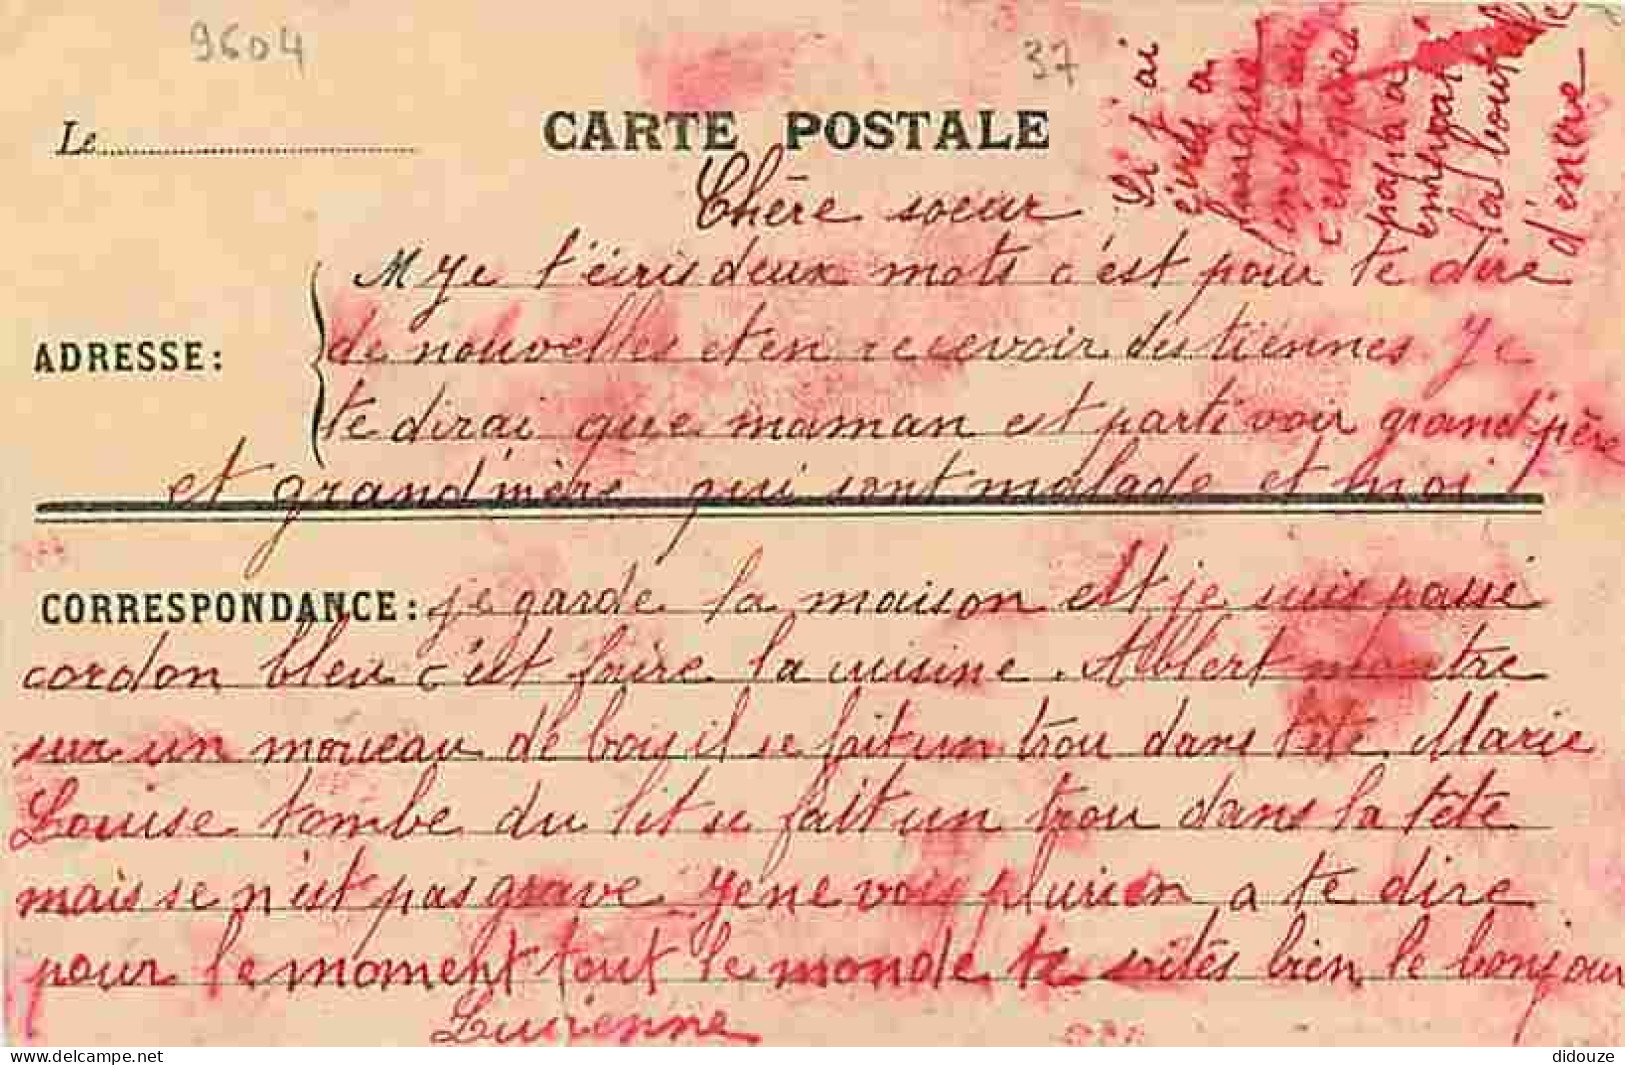 9604
37
Le
CARTE POSTALE
Si t'ai
écris a
l'encre rouge
c'est que
papa a
emmporté
la bouteille
d'encre
Chère soeur
M Je t'écris deux mots c'est pour te dire
ADRESSE: de nouvelles et en recevoir des tiennes. Je
te dirai que maman est parti voir grand'père
et grand'mère qui sont malade et moi
CORRESPONDANCE: je garde la maison est je suis passé
cordon bleu c'est faire la cuisine. Albert montre
sur un morceau de bois il se fait un trou dans tête. Marie
Louise tombe du lit se fait un trou dans la tête
mais se n'est pas grave Je ne vois plurien a te dire
pour le moment tout le monde te soites bien le bonjour
Lucienne
didouze